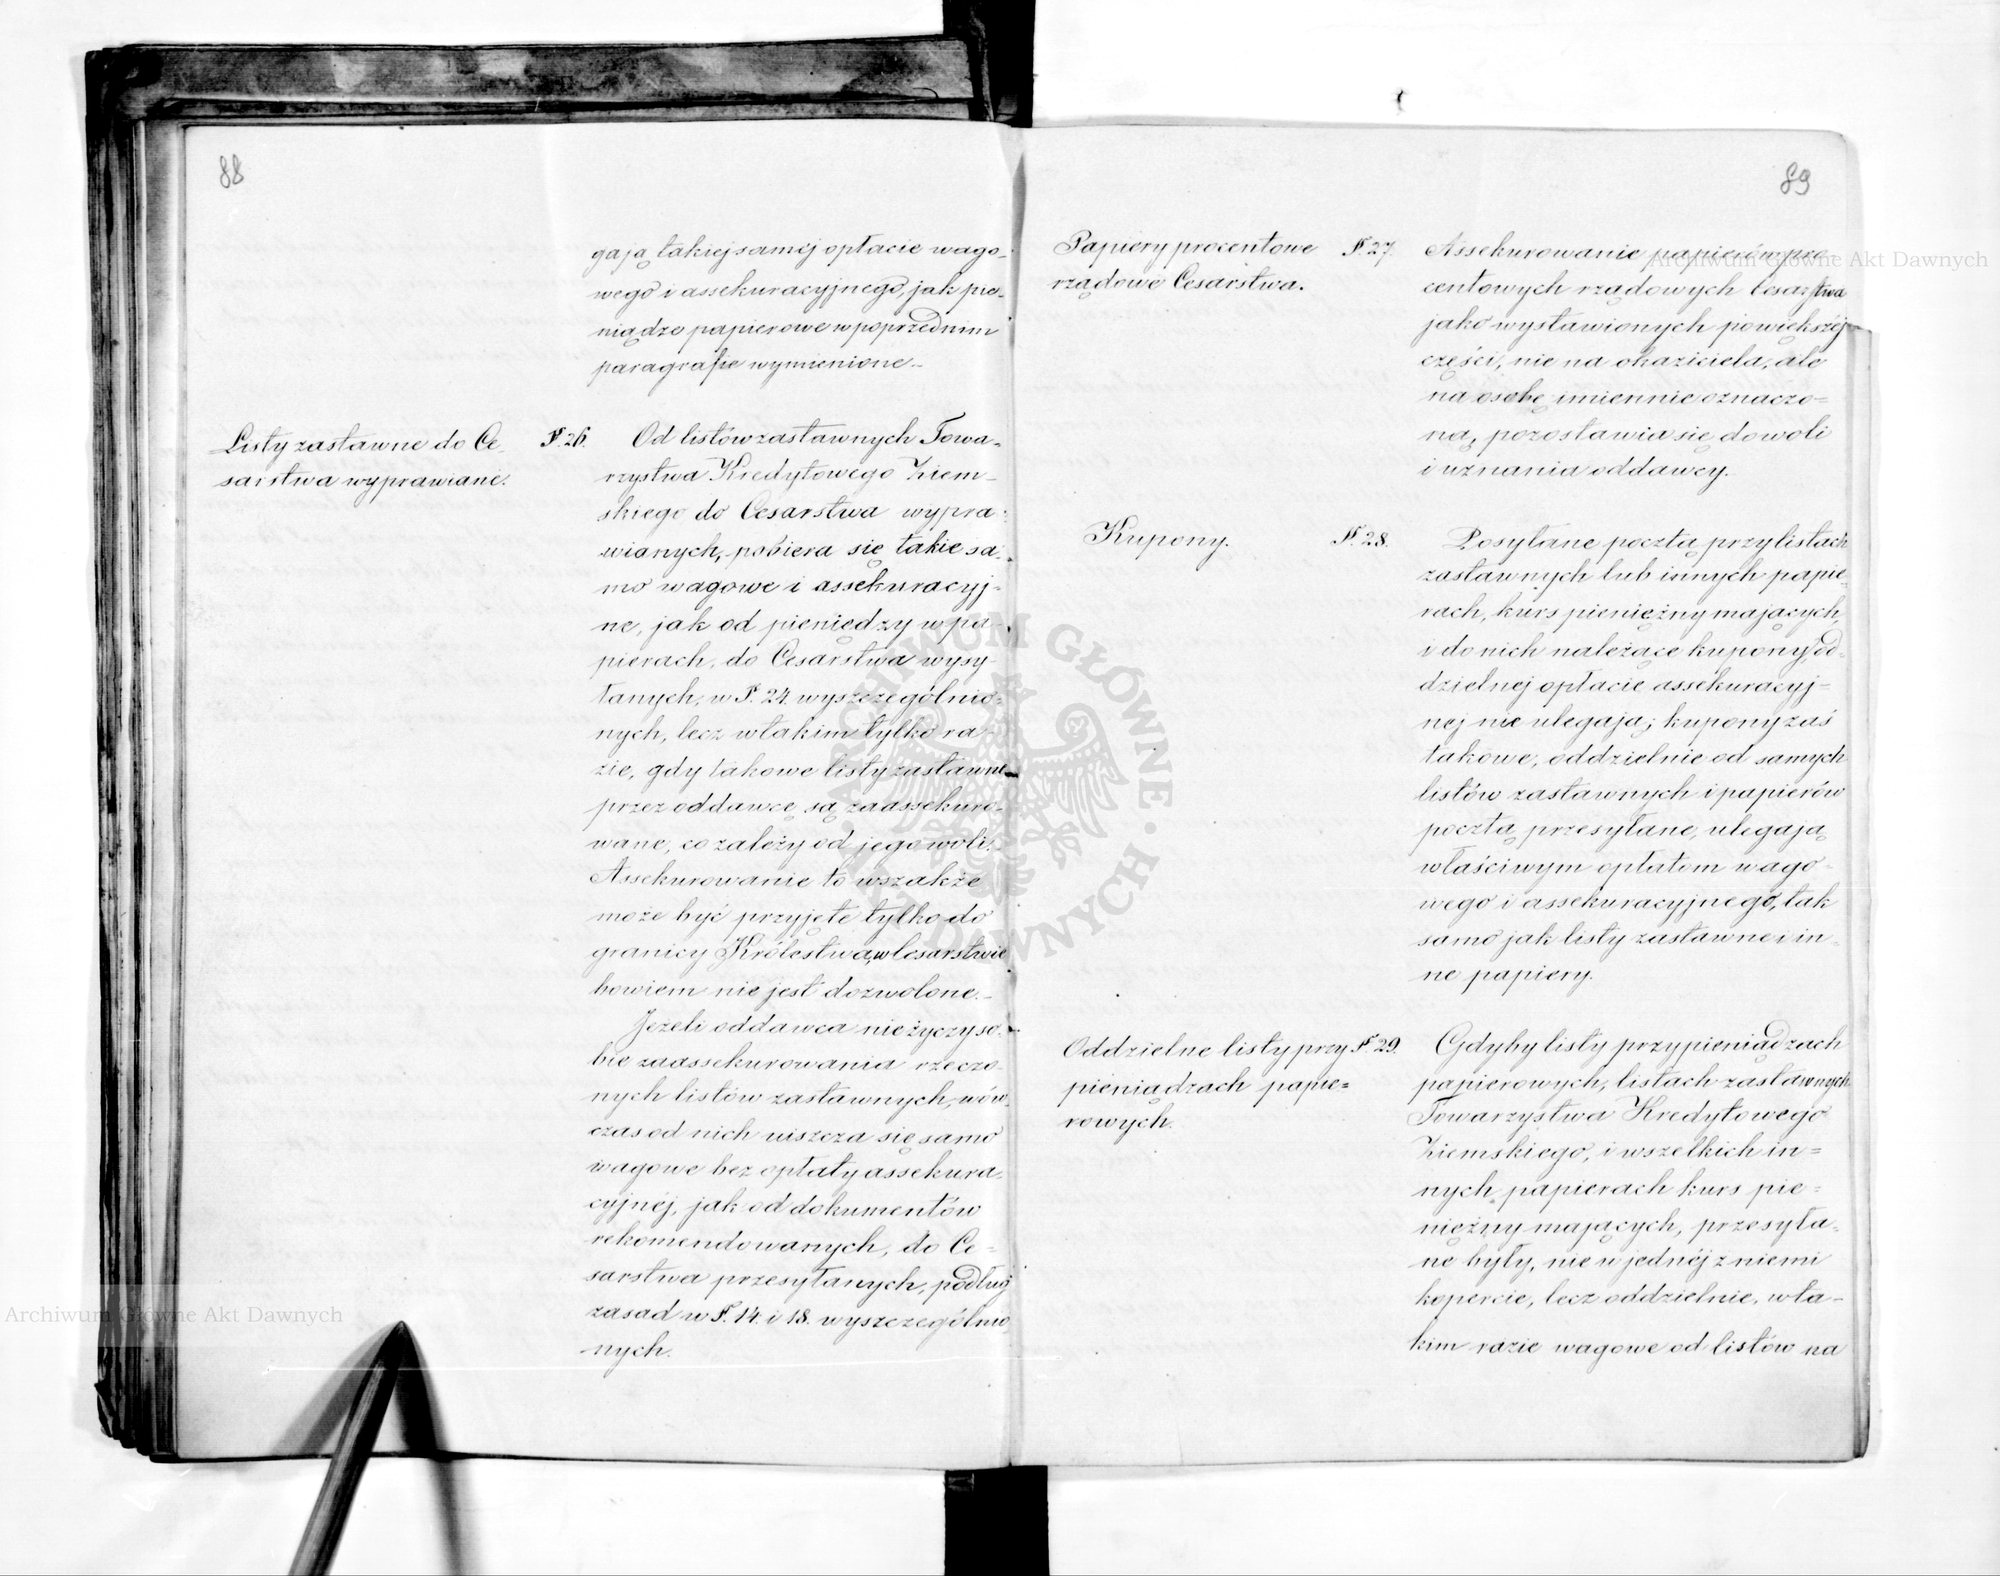 88
gają takiej samej opłacie wago-
wego i assekuracyjnego, jak pie-
niądze papierowe w poprzednim
paragrafie wymienione.-
Listy zastawne do Ce-
sarstwa wyprawiane.
§. 26.
Od listów zastawnych Towa-
rzystwa Kredytowego Ziem-
skiego do Cesarstwa wypra-
wianych, pobiera się takie sa-
mo wagowe i assekuracyj-
ne, jak od pieniędzy w pa-
pierach, do Cesarstwa wysy-
łanych, w §. 24. wyszczególnio-
nych, lecz w takim tylko ra-
zie, gdy takowe listy zastawne
przez oddawcę są zaassekuro-
wane, co zależy od jego woli.
Assekurowanie to wszakże
może być przyjęte tylko do
granicy Królestwa, w Cesarstwie
bowiem nie jest dozwolone.-
Jeżeli oddawca nie życzy so-
bie zaassekurowania rzeczo-
nych listów zastawnych, wów-
czas od nich uiszcza się samo
wagowe bez opłaty assekura-
cyjnéj, jak od dokumentów
rekomendowanych, do Ce-
sarstwa przesyłanych, podług
zasad w §. 14. i 18. wyszczególnio-
nych.
89
Papiery procentowe
rządowe Cesarstwa.
§. 27.
Assekurowanie papierów pro-
centowych rządowych Cesarstwa
jako wystawionych po większéj
części, nie na okaziciela, ale
na osobę imiennie oznaczo=
ną, pozostawia się do woli
i uznania oddawcy.
Kupony.
§. 28.
Posyłane pocztą przy listach
zastawnych lub innych papie-
rach, kurs pieniężny mających,
i do nich należące kupony, od-
dzielnej opłacie assekuracyj=
nej nie ulegają; kupony zaś
takowe, oddzielnie od samych
listów zastawnych i papierów
pocztą przesyłane, ulegają
właściwym opłatom wago-
wego i assekuracyjnego, tak
samo jak listy zastawne i in=
ne papiery.
Oddzielne listy przy
pieniądzach papie=
rowych.
§. 29.
Gdyby listy przy pieniądzach
papierowych, listach zastawnych
Towarzystwa Kredytowego
Ziemskiego, i wszelkich in=
nych papierach kurs pie=
niężny mających, przesyła-
ne były, nie w jednéj z niemi
kopercie, lecz oddzielnie, w ta-
kim razie wagowe od listów na
Archiwum Główne Akt Dawnych
Archiwum Główne Akt Dawnych
ARCHIWUM GŁÓWNE AKT DAWNYCH